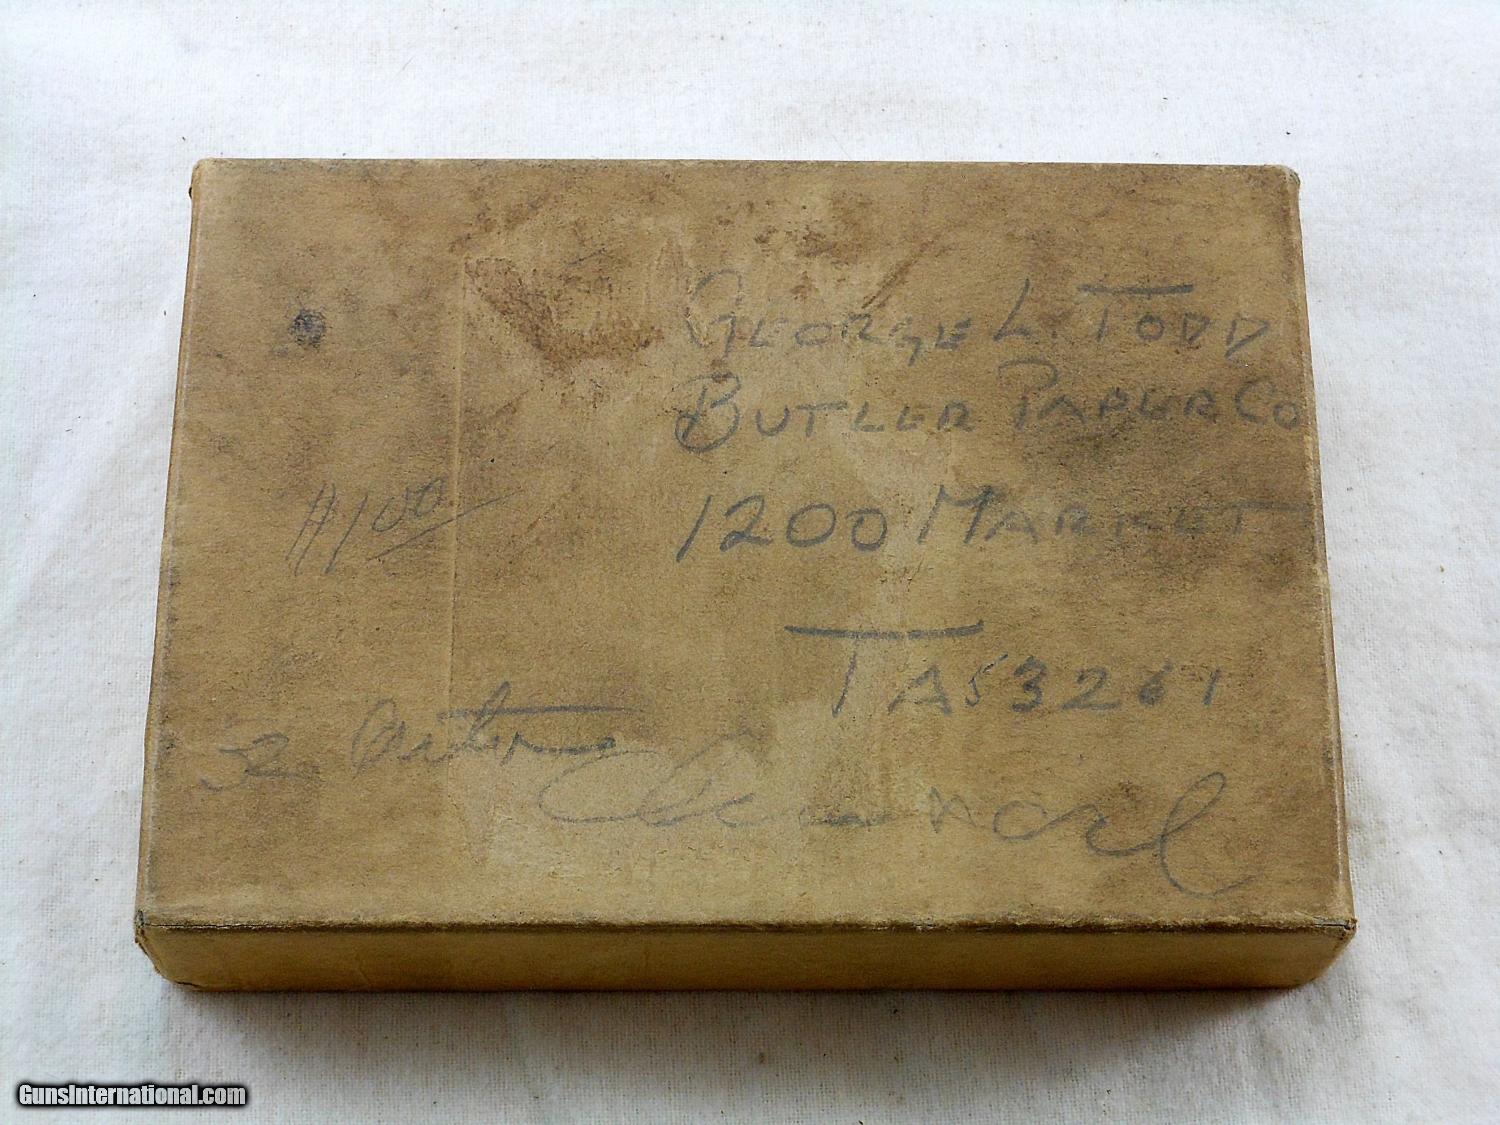 GEORGE L. TODD
BUTLER PAPER CO
$1.00
1200 MARKET
TA53261
32
GunsInternational.com